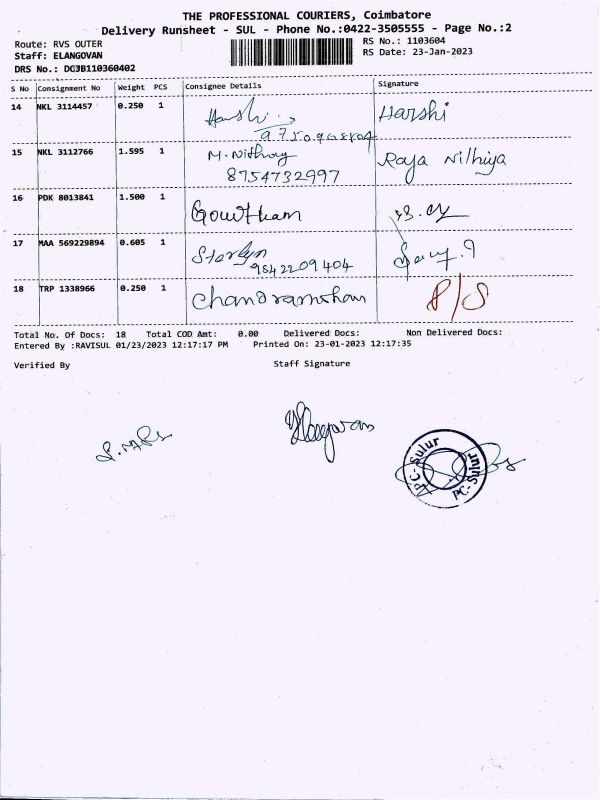 THE PROFESSIONAL COURIERS, Coimbatore
Delivery Runsheet - SUL - Phone No.:0422-3505555 - Page No.:2
Route: RVS OUTER
RS No.: 1103604
Staff: ELANGOVAN
RS Date: 23-Jan-2023
DRS No.: DG3B110360402
S No Consignment No Weight PCS Consignee Details Signature
14 NKL 3114457 0.250 1 Harshi
15 NKL 3112766 1.595 1 M. Nithray Raja Nilhiya
8754732997
16 PDK 8013841 1.500 1 Gowtham
17 MAA 569229894 0.605 1 Sterlyn
9542209404
18 TRP 1338966 0.250 1 Chandramohan P/S
Total No. Of Docs: 18 Total COD Amt: 0.00 Delivered Docs: Non Delivered Docs:
Entered By :RAVISUL 01/23/2023 12:17:17 PM Printed On: 23-01-2023 12:17:35
Verified By Staff Signature
PC-Sulur
PC-Sulur